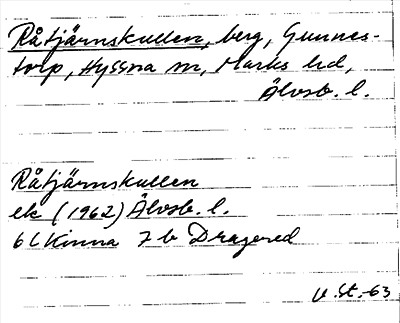 Råtjärnskullen, berg, Gunnes-
torp, Hyssna sn, Marks hd,
Älvsb. l.
Råtjärnskullen
ek (1962) Älvsb. l.
6C Kinna 7b Dragered
V. St. -63